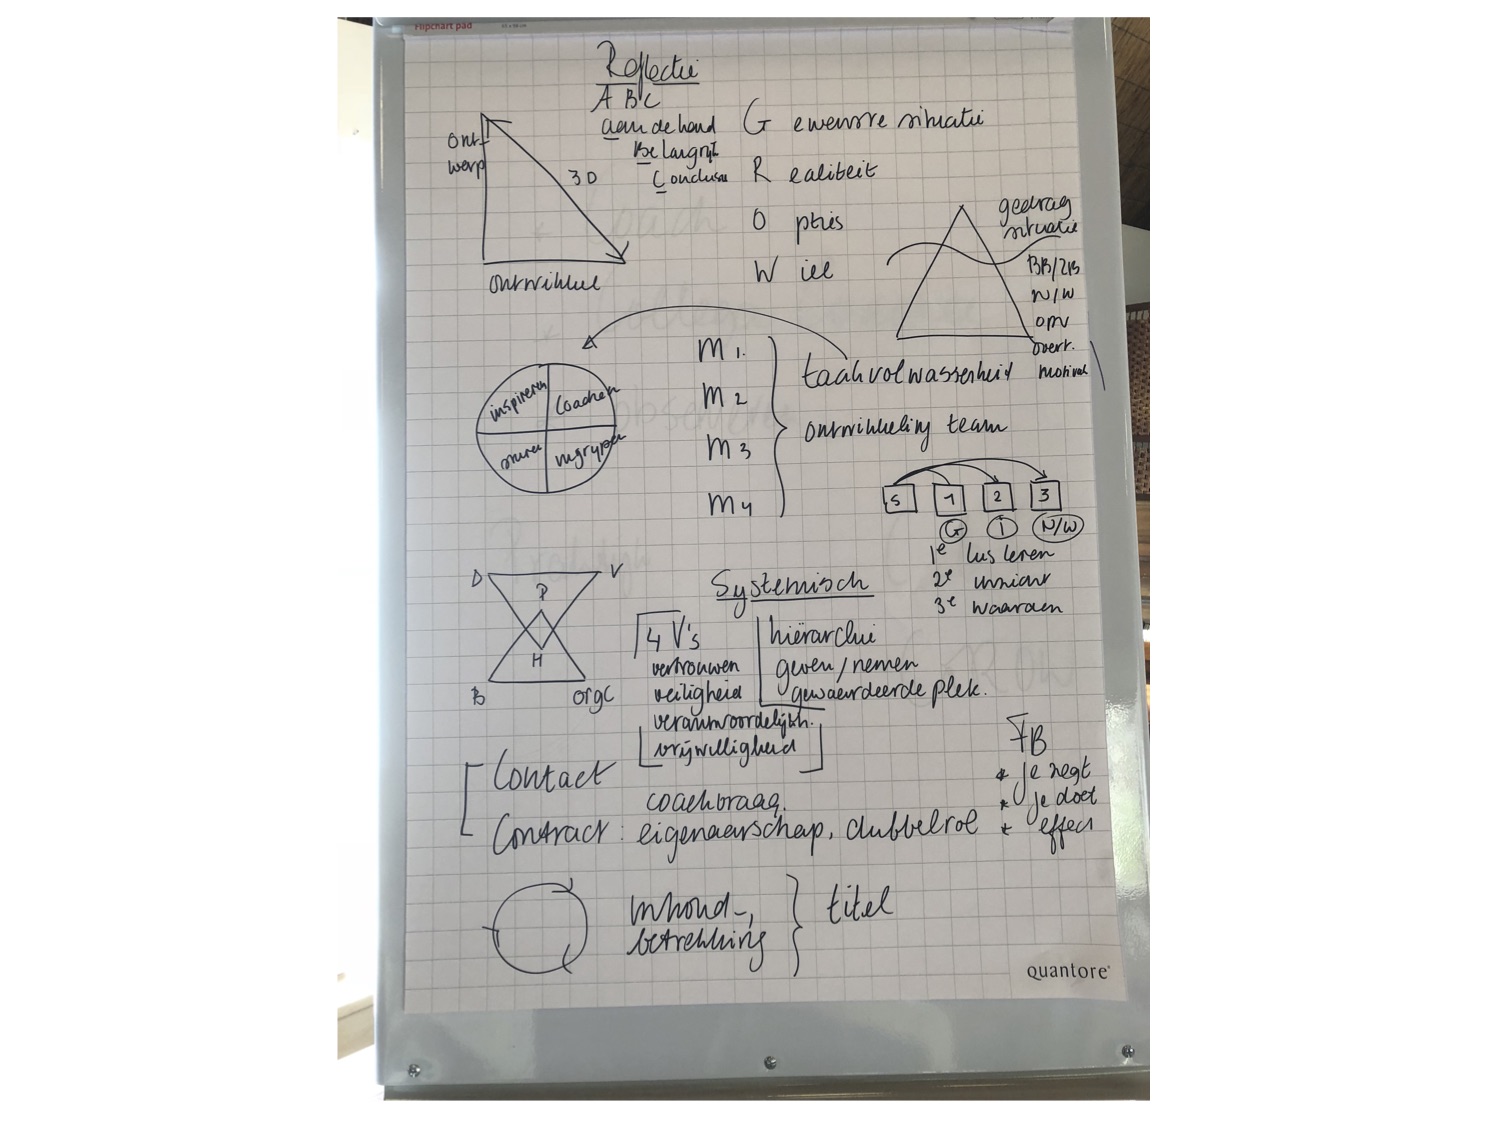 flipchart pad
Reflectie
A B C
aan de hand
Belangrijk
Conclusie
Ont-
werp
3D
Ontwikkel
G ewenste situatie
R ealiteit
O pties
W il
gedrag
situatie
BB/ZB
N/W
opv
overt.
motivat
inspireren
coachen
sturen
ingrijpen
M 1.
M 2
M 3
M 4
taakvolwassenheid
ontwikkeling team
S 1 2 3
G i N/W
1e lus leren
2e inzicht
3e waarden
D V
P
H
B orgC
Systemisch
4 V's
vertrouwen
veiligheid
verantwoordelijkh.
vrijwilligheid
hiërarchie
geven/nemen
gewaardeerde plek.
FB
* je zegt
* je doet
* effect
Contact
coachvraag.
Contract: eigenaarschap, dubbelrol
inhoud-,
betrekking
titel
quantore